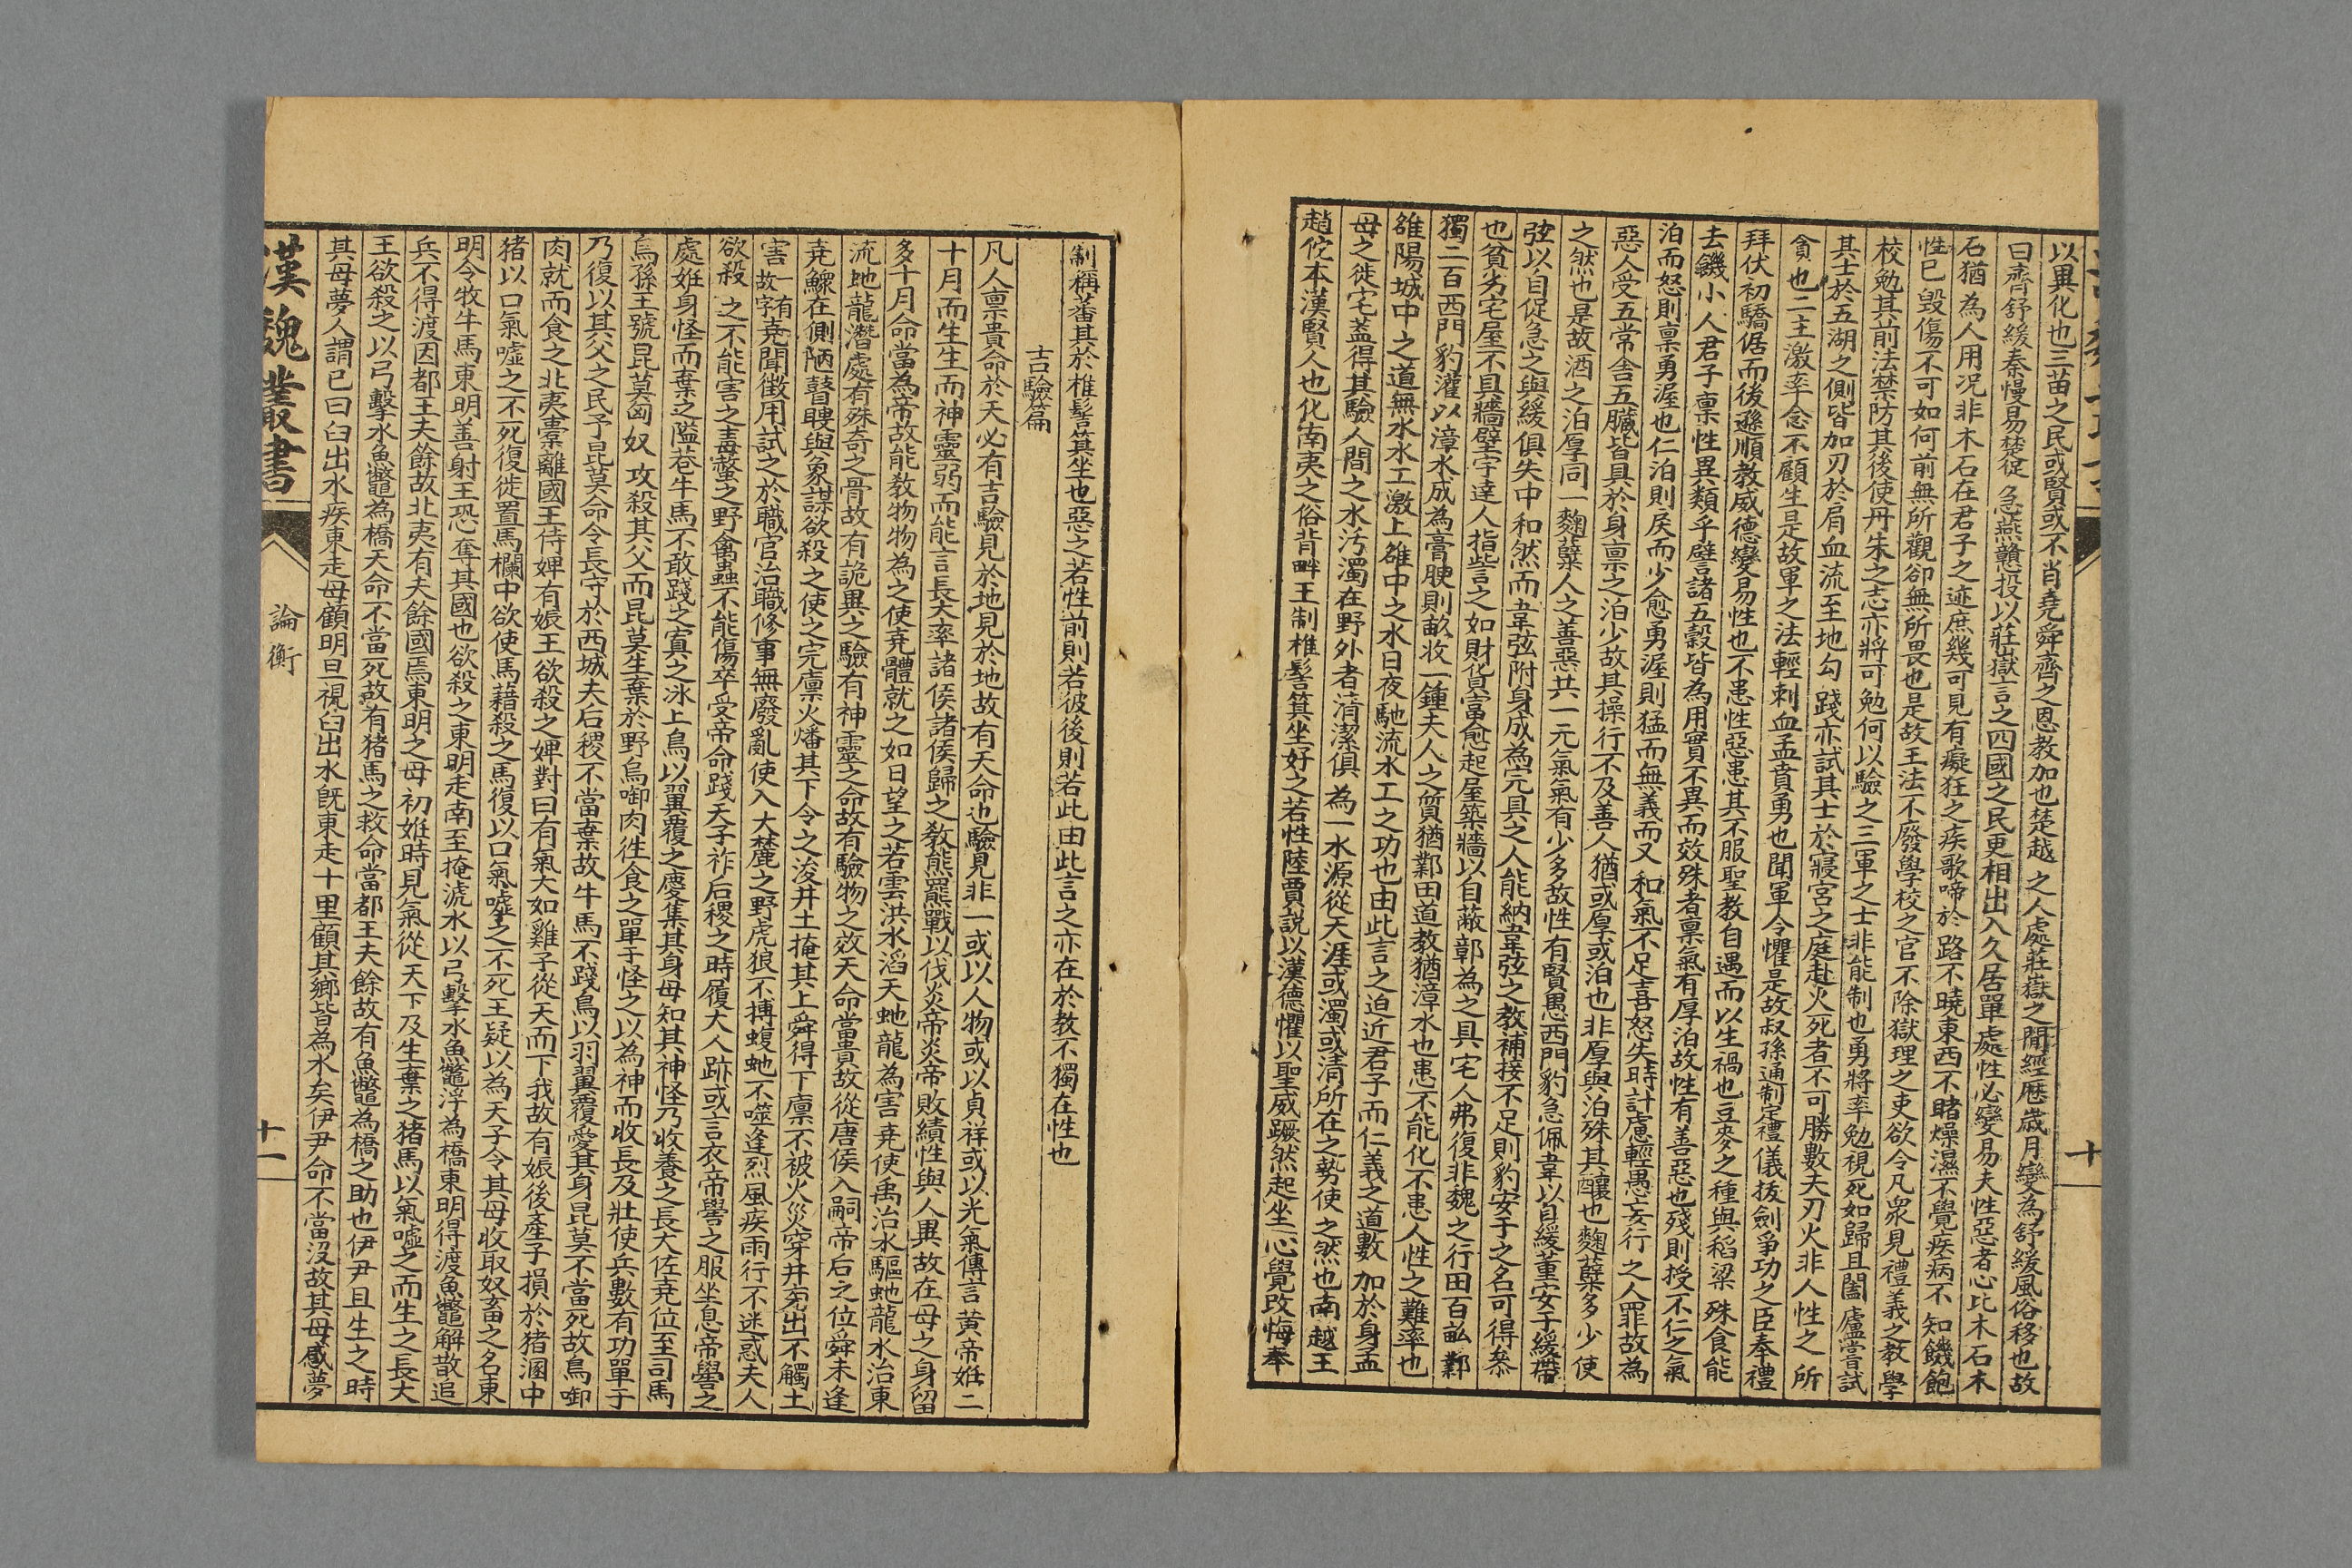 十
以異化也三苗之民或賢或不肖堯舜齊之恩教加也楚越之人處莊嶽之間經歷歲月變為舒緩風俗移也故
曰齊舒緩秦慢易楚促急燕戇投以莊嶽言之四國之民更相出入久居單處性必變易夫性惡者心比木石木
石猶為人用况非木石在君子之迹庶幾可見有癡狂之疾歌啼於路不曉東西不睹燥濕不覺疾病不知饑飽
性已毀傷不可如何前無所觀卻無所畏也是故王法不廢學校之官不除獄理之吏欲令凡眾見禮義之教學
校勉其前法禁防其後使丹朱之志亦將可勉何以驗之三軍之士非能制也勇將率勉視死如歸且闔廬嘗試
其士於五湖之側皆加刃於肩血流至地勾踐亦試其士於寢宮之庭赴火死者不可勝數夫刃火非人性之所
貪也二主激率念不顧生是故軍之法輕刺血孟賁勇也聞軍令懼是故叔孫通制定禮儀拔劍爭功之臣奉禮
拜伏初驕倨而後遜順教威德變易性也不患性惡患其不服聖教自遇而以生禍也豆麥之種與稻粱殊食能
去饑小人君子稟性異類乎譬諸五穀皆為用實不異而效殊者稟氣有厚泊故性有善惡也殘則授不仁之氣
泊而怒則稟勇渥也仁泊則戾而少愈勇渥則猛而無義而又和氣不足喜怒失時計慮輕愚妄行之人罪故為
惡人受五常含五臟皆具於身稟之泊少故其操行不及善人猶或厚或泊也非厚與泊殊其釀也麴糱多少使
之然也是故酒之泊厚同一麴糱人之善惡共一元氣氣有少多故性有賢愚西門豹急佩韋以自緩董安于緩帶
弦以自促急之與緩俱失中和然而韋弦附身成為完具之人能納韋弦之教補接不足則豹安于之名可得參
也貧劣宅屋不具牆壁宇達人指訾之如財貨富愈起屋築牆以自蔽鄣為之具宅人弗復非魏之行田百畝鄴
獨二百西門豹灌以漳水成為膏腴則畝收一鍾夫人之質猶鄴田道教猶漳水也患不能化不患人性之難率也
雒陽城中之道無水水工激上雒中之水日夜馳流水工之功也由此言之迫近君子而仁義之道數加於身孟
母之徙宅蓋得其驗人間之水汚濁在野外者清潔俱為一水源從天涯或濁或清所在之勢使之然也南越王
趙佗本漢賢人也化南夷之俗背畔王制椎髻箕坐好之若性陸賈說以漢德懼以聖威蹶然起坐心覺改悔奉
制稱蕃其於椎髻箕坐也惡之若性前則若彼後則若此由此言之亦在於教不獨在性也
吉驗篇
凡人稟貴命於天必有吉驗見於地見於地故有天命也驗見非一或以人物或以貞祥或以光氣傳言黃帝姙二
十月而生生而神靈弱而能言長大率諸侯諸侯歸之教熊羆戰以伐炎帝炎帝敗績性與人異故在母之身留
多十月命當為帝故能教物物為之使堯體就之如日望之若雲洪水滔天虵龍為害堯使禹治水驅虵龍水治東
流虵龍潛處有殊奇之骨故有詭異之驗有神靈之命故有驗物之效天命當貴故從唐侯入嗣帝后之位舜未逢
堯鰥在側陋瞽瞍與象謀欲殺之使之完廩火燔其下令之浚井土掩其上舜得下廩不被火災穿井旁出不觸土
害一有故字堯聞徵用試之於職官治職修事無廢亂使入大麓之野虎狼不搏蝮虵不噬逢烈風疾雨行不迷惑夫人
欲殺之不能害之毒螫之野禽蟲不能傷卒受帝命踐天子祚后稷之時履大人跡或言衣帝嚳之服坐息帝嚳之
處姙身怪而棄之隘巷牛馬不敢踐之寘之冰上鳥以翼覆之慶集其身母知其神怪乃收養之長大佐堯位至司馬
烏孫王號昆莫匈奴攻殺其父而昆莫生棄於野烏啣肉徃食之單于怪之以為神而收長及壯使兵數有功單于
乃復以其父之民予昆莫命令長守於西城夫后稷不當棄故牛馬不踐鳥以羽翼覆愛其身昆莫不當死故烏啣
肉就而食之北夷橐離國王侍婢有娠王欲殺之婢對曰有氣大如雞子從天而下我故有娠後產子損於猪溷中
猪以口氣嘘之不死復徙置馬欄中欲使馬藉殺之馬復以口氣嘘之不死王疑以為天子令其母收取奴畜之名東
明令牧牛馬東明善射王恐奪其國也欲殺之東明走南至掩淲水以弓擊水魚鼈浮為橋東明得渡魚鼈解散追
兵不得渡因都王夫餘故北夷有夫餘國焉東明之母初姙時見氣從天下及生棄之猪馬以氣嘘之而生之長大
王欲殺之以弓擊水魚鼈為橋天命不當死故有猪馬之救命當都王夫餘故有魚鼈為橋之助也伊尹且生之時
其母夢人謂已曰臼出水疾東走母顧明旦視臼出水旣東走十里顧其鄉皆為水矣伊尹命不當沒故其母感夢
漢魏叢書 論衡 十一